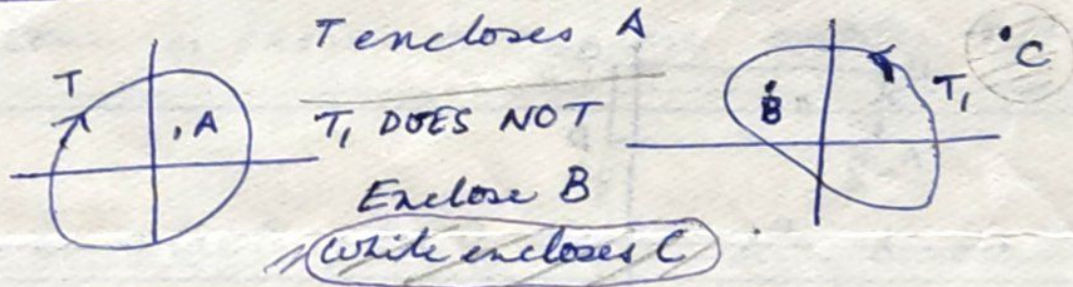 T encloses A
T
A
T₁ DOES NOT
Enclose B
While encloses C
B
T₁
C